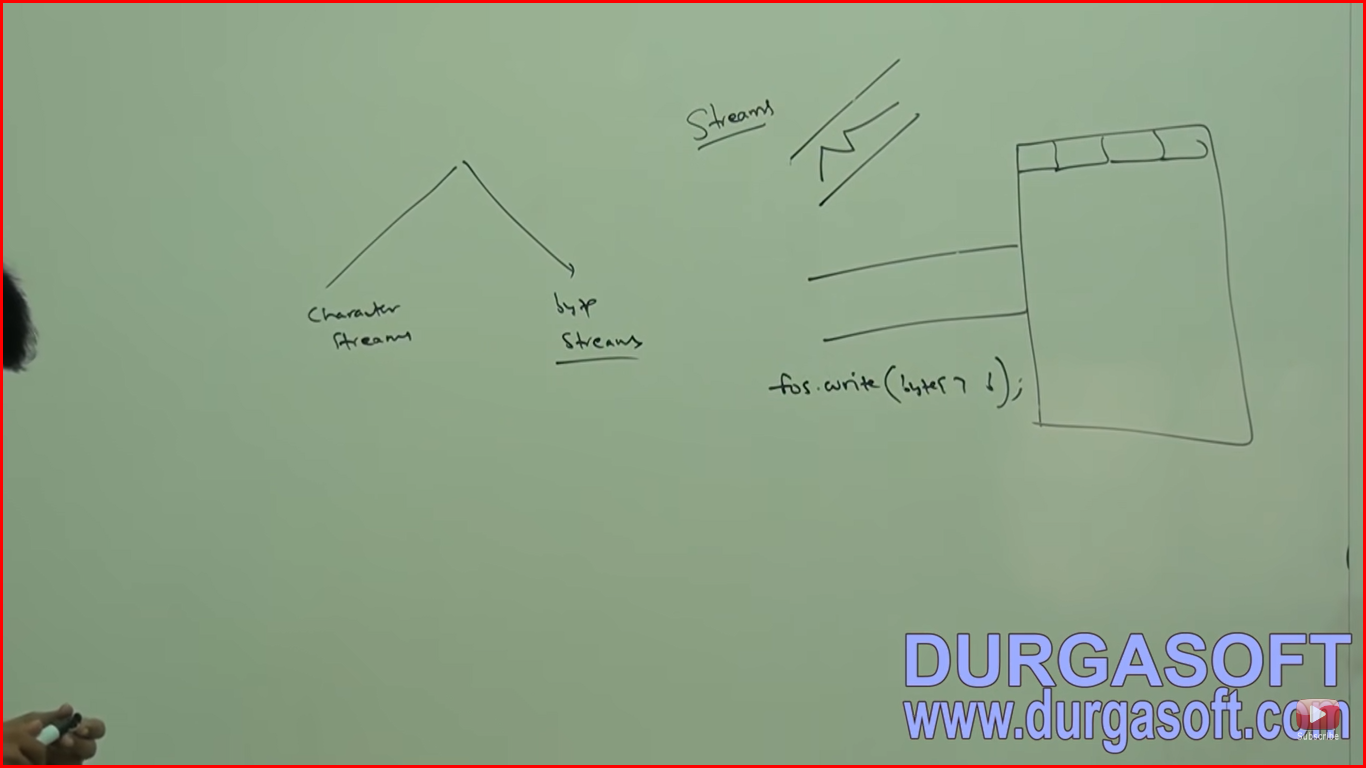 Streams
Character
Streams
byte
Streams
fos.write(byte[] b);
DURGASOFT
www.durgasoft.com
Subscribe